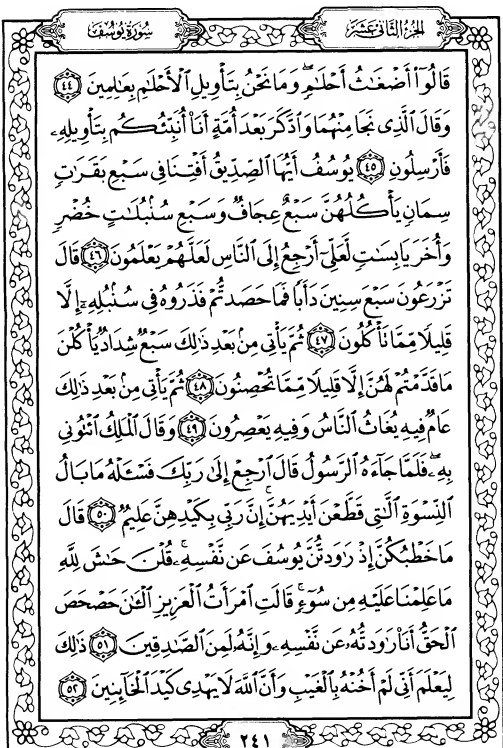 سُورَةُ يُوسُفَ
الجُزْءُ الثَّانِي عَشَرَ
قَالُوٓا۟ أَضْغَـٰثُ أَحْلَـٰمٍ ۖ وَمَا نَحْنُ بِتَأْوِيلِ ٱلْأَحْلَـٰمِ بِعَـٰلِمِينَ ٤٤
وَقَالَ ٱلَّذِى نَجَا مِنْهُمَا وَٱدَّكَرَ بَعْدَ أُمَّةٍ أَنَا۠ أُنَبِّئُكُم بِتَأْوِيلِهِۦ
فَأَرْسِلُونِ ٤٥ يُوسُفُ أَيُّهَا ٱلصِّدِّيقُ أَفْتِنَا فِى سَبْعِ بَقَرَٰتٍ
سِمَانٍ يَأْكُلُهُنَّ سَبْعٌ عِجَافٌ وَسَبْعِ سُنۢبُلَـٰتٍ خُضْرٍ
وَأُخَرَ يَابِسَـٰتٍ لَّعَلِّىٓ أَرْجِعُ إِلَى ٱلنَّاسِ لَعَلَّهُمْ يَعْلَمُونَ ٤٦ قَالَ
تَزْرَعُونَ سَبْعَ سِنِينَ دَأَبًا فَمَا حَصَدتُّمْ فَذَرُوهُ فِى سُنۢبُلِهِۦٓ إِلَّا
قَلِيلًا مِّمَّا تَأْكُلُونَ ٤٧ ثُمَّ يَأْتِى مِنۢ بَعْدِ ذَٰلِكَ سَبْعٌ شِدَادٌ يَأْكُلْنَ
مَا قَدَّمْتُمْ لَهُنَّ إِلَّا قَلِيلًا مِّمَّا تُحْصِنُونَ ٤٨ ثُمَّ يَأْتِى مِنۢ بَعْدِ ذَٰلِكَ
عَامٌ فِيهِ يُغَاثُ ٱلنَّاسُ وَفِيهِ يَعْصِرُونَ ٤٩ وَقَالَ ٱلْمَلِكُ ٱئْتُونِى
بِهِۦ ۖ فَلَمَّا جَآءَهُ ٱلرَّسُولُ قَالَ ٱرْجِعْ إِلَىٰ رَبِّكَ فَسْـَٔلْهُ مَا بَالُ
ٱلنِّسْوَةِ ٱلَّـٰتِى قَطَّعْنَ أَيْدِيَهُنَّ ۚ إِنَّ رَبِّى بِكَيْدِهِنَّ عَلِيمٌ ٥٠ قَالَ
مَا خَطْبُكُنَّ إِذْ رَٰوَدتُّنَّ يُوسُفَ عَن نَّفْسِهِۦ ۚ قُلْنَ حَـٰشَ لِلَّهِ
مَا عَلِمْنَا عَلَيْهِ مِن سُوٓءٍ ۚ قَالَتِ ٱمْرَأَتُ ٱلْعَزِيزِ ٱلْـَٔـٰنَ حَصْحَصَ
ٱلْحَقُّ أَنَا۠ رَٰوَدتُّهُۥ عَن نَّفْسِهِۦ وَإِنَّهُۥ لَمِنَ ٱلصَّـٰدِقِينَ ٥١ ذَٰلِكَ
لِيَعْلَمَ أَنِّى لَمْ أَخُنْهُ بِٱلْغَيْبِ وَأَنَّ ٱللَّهَ لَا يَهْدِى كَيْدَ ٱلْخَآئِنِينَ ٥٢
٢٤١